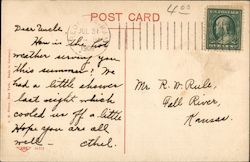 POST CARD
4.00
JUL 21
Dear Uncle
How is the hot
weather serving you
this summer? We
had a little shower
last night which
cooled us off a little
Hope you are all
well - Ethel.
Mr. R. W. Rule,
Fall River,
Kansas.